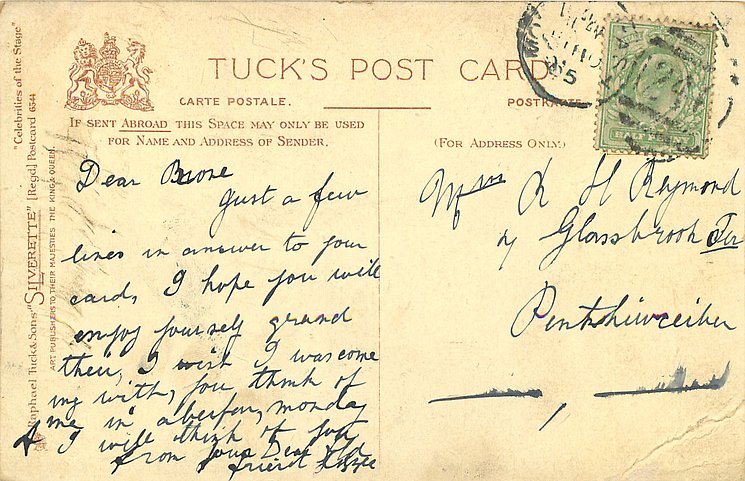 TUCK'S POST CARD
CARTE POSTALE.
IF SENT ABROAD THIS SPACE MAY ONLY BE USED
FOR NAME AND ADDRESS OF SENDER.
(FOR ADDRESS ONLY.)
"Celebrities of the Stage"
Raphael Tuck & Sons' "SILVERETTE" [Regd] Postcard 6544
ART PUBLISHERS TO THEIR MAJESTIES THE KING & QUEEN.
Dear
Just a few
lines in answer to your
card, I hope you will
enjoy yourself grand
their, I wish I was come
ing with, you think of
me in aberfan, monday
I will think of you
from your Dear Old
friend
Mrs H Raymond
Glassbrook Ter
Penthiwceiber